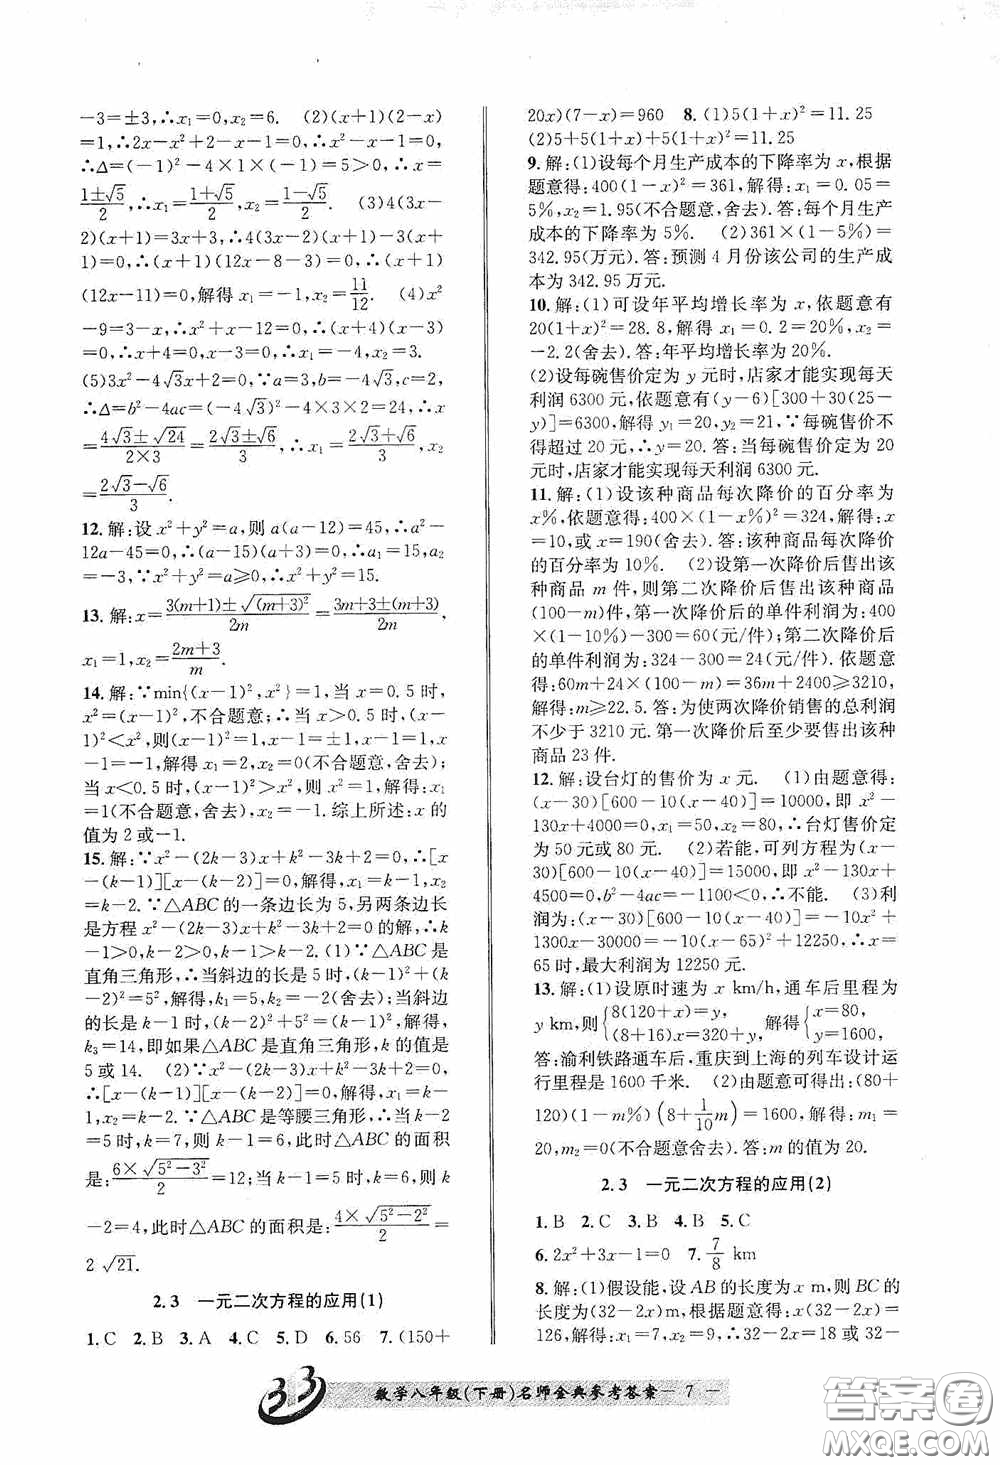 -3=±3,∴x₁=0,x₂=6. (2)(x+1)(2-x)
=1,∴2x-x²+2-x-1=0,∴x²-x-1=0,
∴Δ=(-1)²-4×1×(-1)=5>0,∴x=
(1±√5)/2,∴x₁=(1+√5)/2,x₂=(1-√5)/2. (3)4(3x-
2)(x+1)=3x+3,∴4(3x-2)(x+1)-3(x+
1)=0,∴(x+1)(12x-8-3)=0,∴(x+1)
(12x-11)=0,解得 x₁=-1,x₂=11/12. (4)x²
-9=3-x,∴x²+x-12=0,∴(x+4)(x-3)
=0,∴x+4=0,x-3=0,∴x₁=-4,x₂=3.
(5)3x²-4√3x+2=0,∵a=3,b=-4√3,c=2,
∴Δ=b²-4ac=(-4√3)²-4×3×2=24,∴x
=(4√3±√24)/(2×3)=(2√3±√6)/3,∴x₁=(2√3+√6)/3,x₂
=(2√3-√6)/3.
12.解:设 x²+y²=a,则 a(a-12)=45,∴a²-
12a-45=0,∴(a-15)(a+3)=0,∴a₁=15,a₂
=-3,∵x²+y²=a≥0,∴x²+y²=15.
13.解:x=(3(m+1)±√(m+3)²)/2m=(3m+3±(m+3))/2m,
x₁=1,x₂=(2m+3)/m.
14.解:∵min{(x-1)²,x²}=1,当 x=0.5 时,
x²=(x-1)²,不合题意;∴当 x>0.5 时,(x-
1)²<x²,则(x-1)²=1,x-1=±1,x-1=1,x
-1=-1,解得 x₁=2,x₂=0(不合题意,舍去);
当 x<0.5 时,(x-1)²>x²,则 x²=1,解得:x₁=
1(不合题意,舍去),x₂=-1.综上所述:x 的
值为 2 或-1.
15.解:∵x²-(2k-3)x+k²-3k+2=0,∴[x
-(k-1)][x-(k-2)]=0,解得,x₁=k-1,x₂
=k-2.∵△ABC 的一条边长为 5,另两条边长
是方程 x²-(2k-3)x+k²-3k+2=0 的解,∴k
-1>0,k-2>0,k-1>k-2.(1)∵△ABC 是
直角三角形,∴当斜边的长是 5 时,(k-1)²+(k
-2)²=5²,解得,k₁=5,k₂=-2(舍去);当斜边的
长是 k-1 时,(k-2)²+5²=(k-1)²,解得,
k₃=14,即如果△ABC 是直角三角形,k 的值是
5 或 14. (2)∵x²-(2k-3)x+k²-3k+2=0,
∴[x-(k-1)][x-(k-2)]=0,解得,x₁=k-1,
x₂=k-2.∵△ABC 是等腰三角形,∴当 k-2=
5 时,k=7,则 k-1=6,此时△ABC 的面积
是:(6×√(5²-3²))/2=12;当 k-1=5 时,k=6,则 k
-2=4,此时△ABC 的面积是:(4×√(5²-2²))/2=
2√21.
2.3 一元二次方程的应用(1)
1.C 2.B 3.A 4.C 5.D 6.56 7.(150+
20x)(7-x)=960 8.(1)5(1+x)²=11.25
(2)5+5(1+x)+5(1+x)²=11.25
9.解:(1)设每个月生产成本的下降率为 x,根据
题意得:400(1-x)²=361,解得:x₁=0.05=
5%,x₂=1.95(不合题意,舍去).答:每个月生产
成本的下降率为 5%. (2)361×(1-5%)=
342.95(万元).答:预测 4 月份该公司的生产成
本为 342.95 万元.
10.解:(1)可设年平均增长率为 x,依题意有
20(1+x)²=28.8,解得 x₁=0.2=20%,x₂=
-2.2(舍去).答:年平均增长率为 20%.
(2)设每碗售价定为 y 元时,店家才能实现每天
利润 6300 元,依题意有(y-6)[300+30(25-
y)]=6300,解得 y₁=20,y₂=21,∵每碗售价不
得超过 20 元,∴y=20.答:当每碗售价定为 20
元时,店家才能实现每天利润 6300 元.
11.解:(1)设该种商品每次降价的百分率为
x%,依题意得:400×(1-x%)²=324,解得:x
=10,或 x=190(舍去).答:该种商品每次降价
的百分率为 10%. (2)设第一次降价后售出该
种商品 m 件,则第二次降价后售出该种商品
(100-m)件,第一次降价后的单件利润为:400
×(1-10%)-300=60(元/件);第二次降价后
的单件利润为:324-300=24(元/件).依题意
得:60m+24×(100-m)=36m+2400≥3210,
解得:m≥22.5.答:为使两次降价销售的总利润
不少于 3210 元.第一次降价后至少要售出该种
商品 23 件.
12.解:设台灯的售价为 x 元. (1)由题意得:
(x-30)[600-10(x-40)]=10000,即 x²-
130x+4000=0,x₁=50,x₂=80,∴台灯售价定
为 50 元或 80 元. (2)若能,可列方程为(x-
30)[600-10(x-40)]=15000,即 x²-130x+
4500=0,b²-4ac=-1100<0,∴不能. (3)利
润为:(x-30)[600-10(x-40)]=-10x²+
1300x-30000=-10(x-65)²+12250,∴x=
65 时,最大利润为 12250 元.
13.解:(1)设原时速为 x km/h,通车后里程为
y km,则{8(120+x)=y, (8+16)x=320+y, 解得{x=80, y=1600.
答:渝利铁路通车后,重庆到上海的列车设计运
行里程是 1600 千米. (2)由题意可得出:(80+
120)(1-m%)(8+1/10 m)=1600,解得:m₁=
20,m₂=0(不合题意舍去).答:m 的值为 20.
2.3 一元二次方程的应用(2)
1.B 2.C 3.B 4.B 5.C
6.2x²+3x-1=0 7.7/8 km
8.解:(1)假设能,设 AB 的长度为 x m,则 BC 的
长度为(32-2x)m,根据题意得:x(32-2x)=
126,解得:x₁=7,x₂=9,∴32-2x=18 或 32-
33 数学八年级(下册)名师金典参考答案— 7 —
答案圈
MXQE.COM